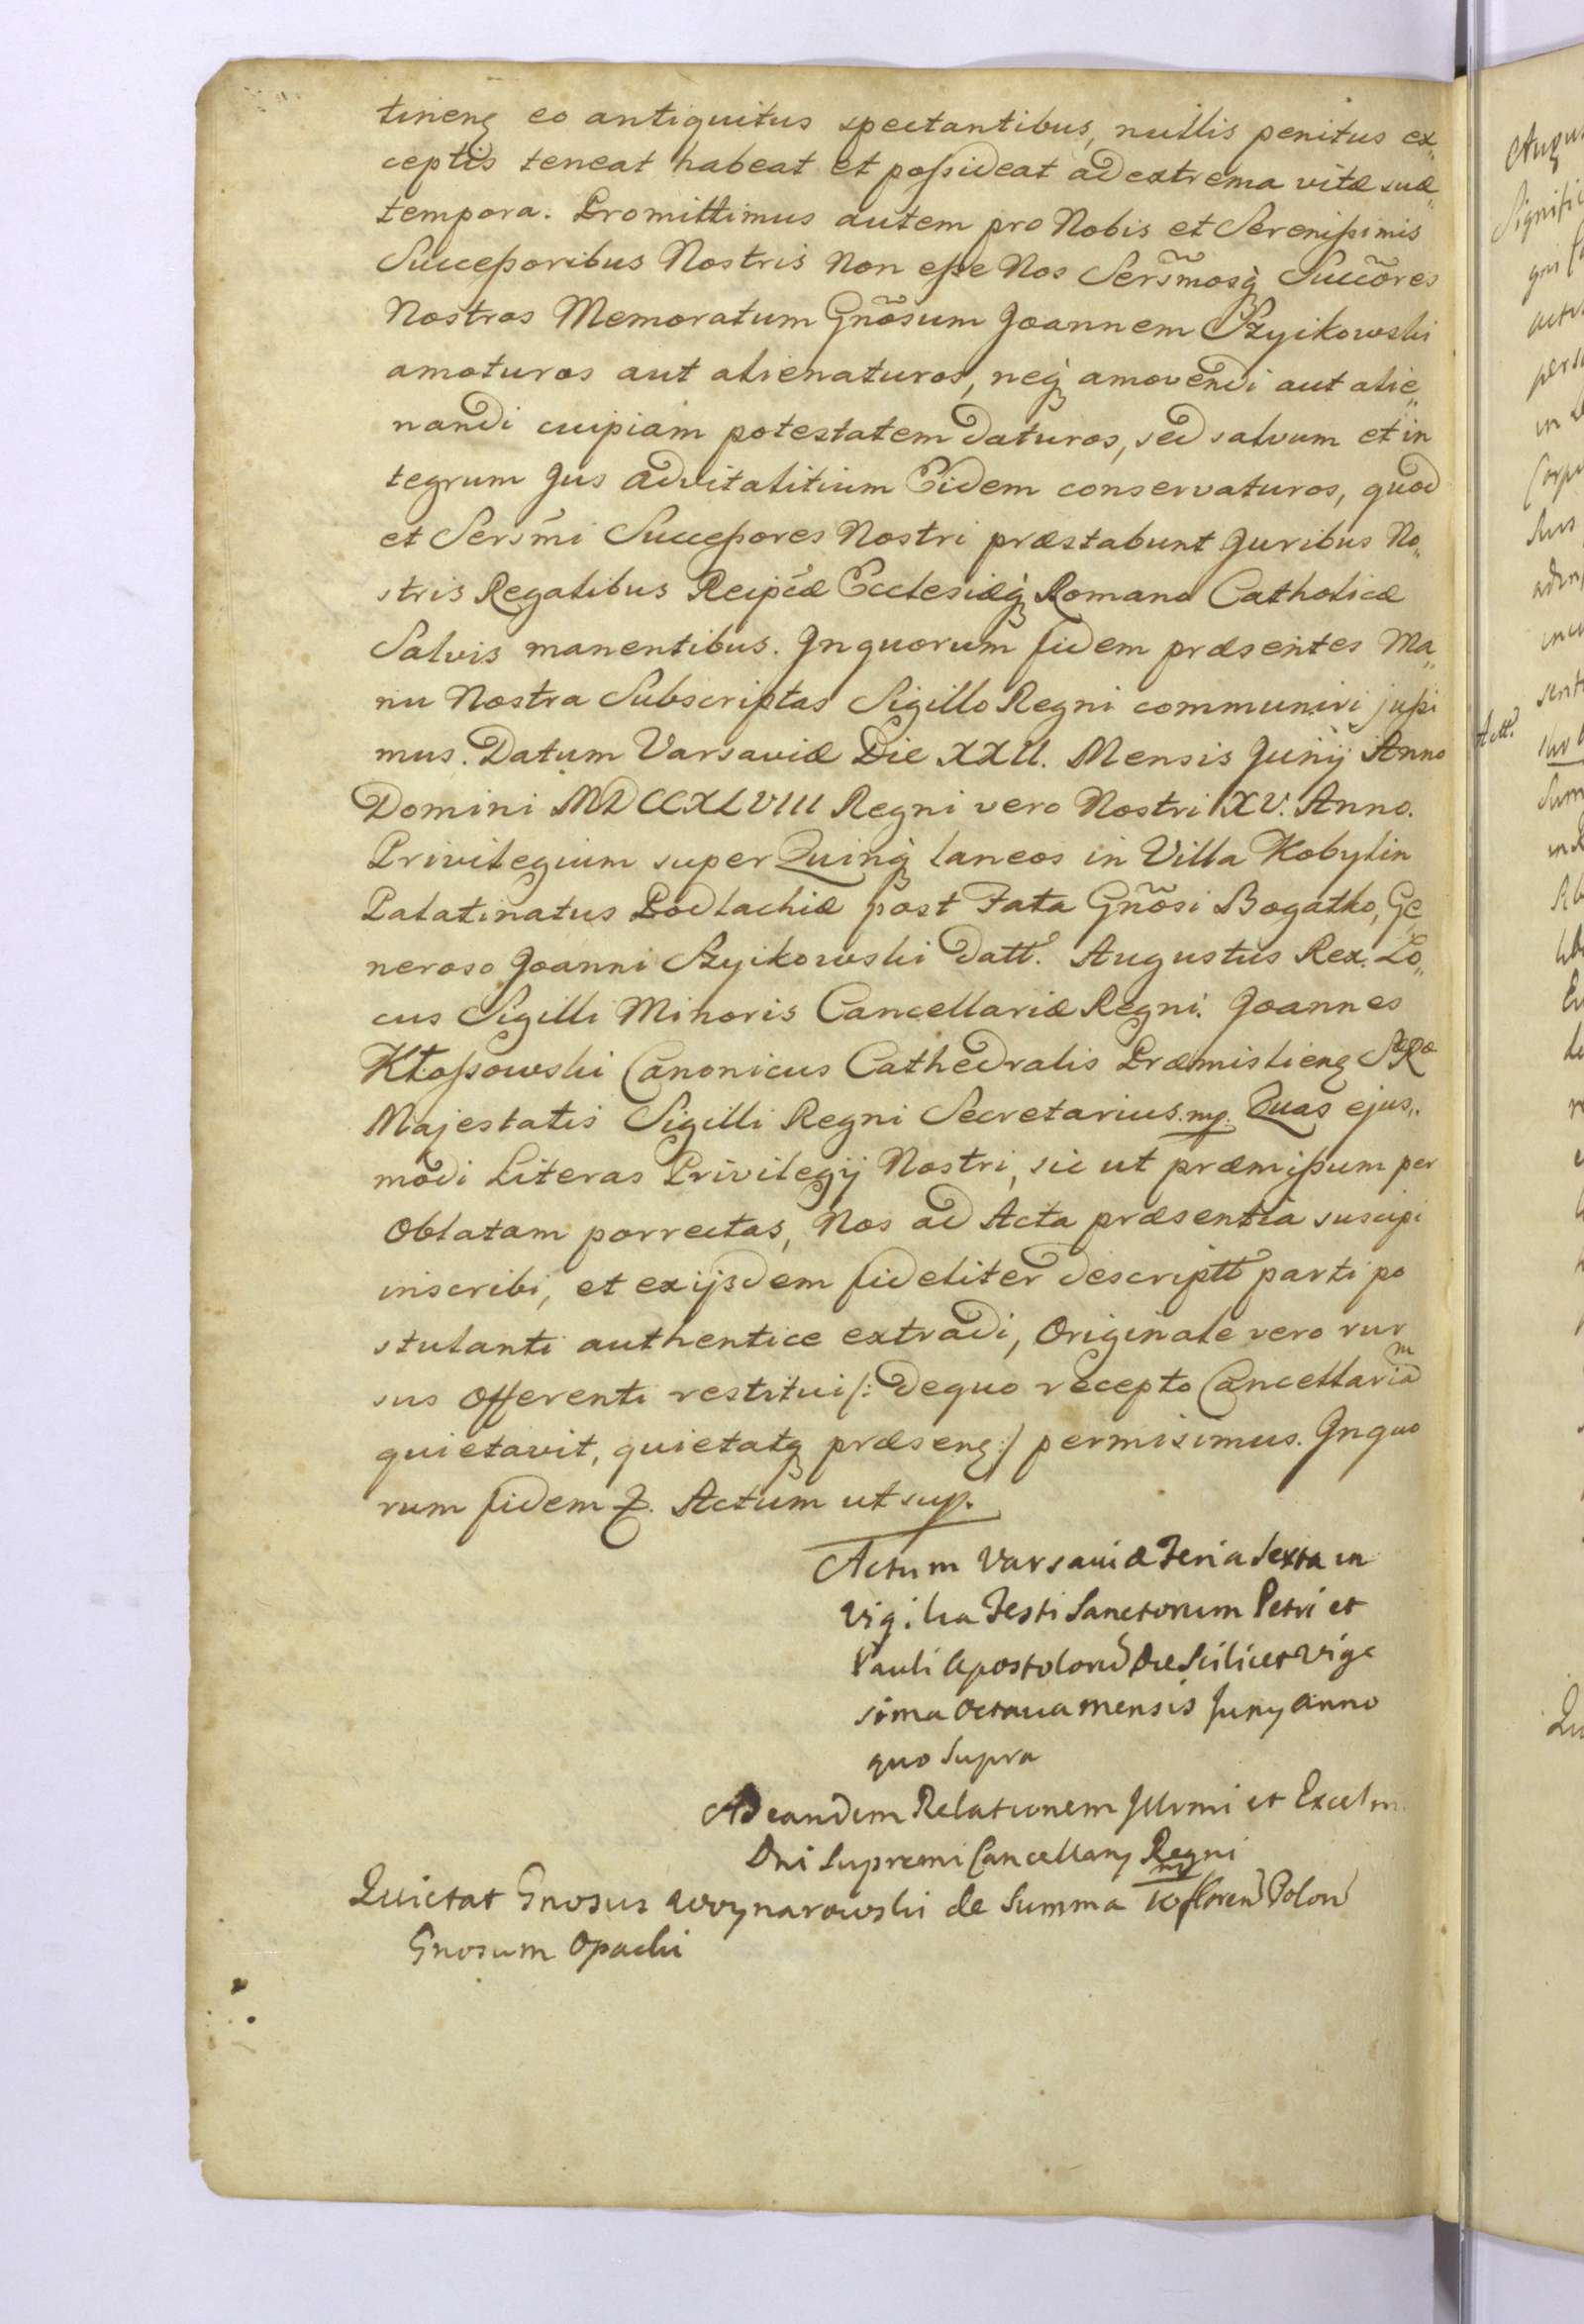 tinenꝫ eo antiquitus spectantibus, nullis penitus ex„
ceptis teneat habeat et poſsideat ad extrema vitæ suæ„
tempora. Promittimus autem pro Nobis et Sereniſsimis
Succeſsoribus Nostris Non eſse Nos Serm̃osq̃ Succõres
Nostros Memoratum Gnõsum Joannem Szyikowski
amoturos aut alienaturos, neq̃ amovendi aut alie„
nandi cuipiam potestatem daturos, sed salvum et in
tegrum Jus Advitalitium Eidem conservaturos, quod
et Sersm̃i Succeſsores Nostri præstabunt Juribus No„
stris Regalibus Reipcæ Ecclesiæq̃ Romano Catholicæ
Salvis manentibus. Jn quorum fidem præsentes Ma„
nu Nostra Subscriptas Sigillo Regni communiri juſsi
mus. Datum Varsaviæ Die XXII. Mensis Junÿ Anno
Domini MDCCXLVIII Regni vero Nostri XV. Anno.
Privilegium super Quinq̃ laneos in Villa Kobylin
Palatinatus Podlachiæ post Fata Gnõsi Bogatko, Ge„
neroso Joanni Szyikowski datt. Augustus Rex. Lo„
cus Sigilli Minoris Cancellariæ Regni. Joannes
Kłoſsowski Canonicus Cathedralis Præmislienꝫ SæRæ
Majestatis Sigilli Regni Secretarius.mp. Quas ejus„
modi Literas Privilegij Nostri, sic ut præmiſsum per
Oblatam porrectas, Nos ad Acta præsentia suscipi
inscribi, et ex ijsdem fideliter descriptt parti po
stulanti authentice extradi, Originale vero rur
sus Offerenti restitui /: de quo recepto Cancellariam
quietavit, quietatꝫ præsenꝫ :/ permisimus. Jn quo
rum fidem &. Actum ut sup.
Actum Varsauiæ Feria Sexta in
Vigilia Festi Sanctorum Petri et
Pauli Apostolorū Die Scilicet Vige
sima Octaua mensis Juny anno
quo Supra
Ad eandem Relationem Jllrmi et Excelm.
Dni Supremi Cancellarÿ Regni
Quietat Gnosus Woynarowski de Summa 10/m floren Polon
Gnosum Opacki